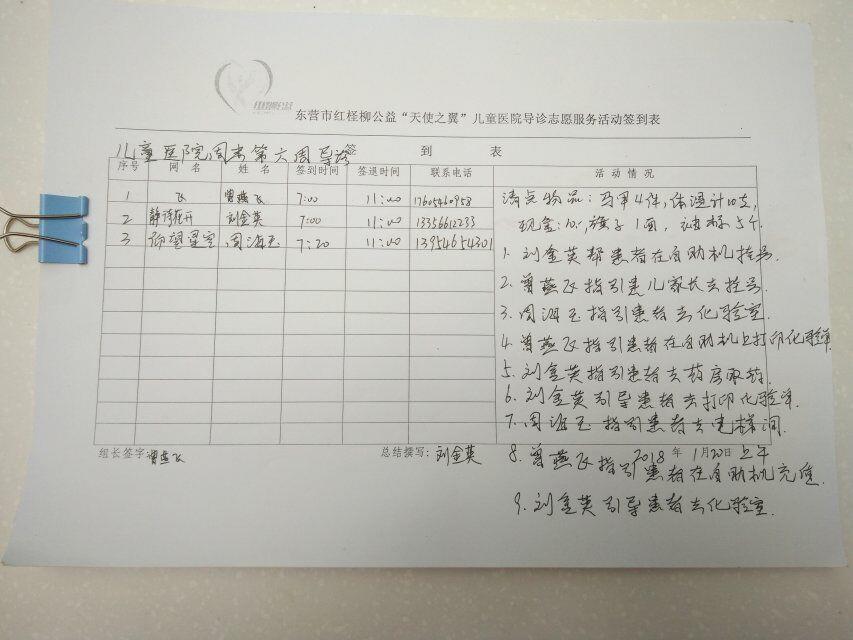 东营市红柽柳公益“天使之翼”儿童医院导诊志愿服务活动签到表
儿童医院周末第六周导诊
签 到 表
序号 网 名 姓 名 签到时间 签退时间 联系电话 活 动 情 况
1 飞 曾燕飞 7:00 11:00 17605460958
2 静待花开 刘金英 7:00 11:00 13356612233
3 仰望星空 周海玉 7:20 11:00 13954654301
清点物品:马甲4件,体温计10支,
现金:10.,旗子1面,袖标5个.
1. 刘金英帮患者在自助机挂号.
2. 曾燕飞指引患儿家长去挂号.
3. 周海玉指引患者去化验室.
4. 曾燕飞指引患者在自助机上打印化验单.
5. 刘金英指引患者去药房取药.
6. 刘金英引导患者去打印化验单.
7. 周海玉指引患者去电梯间.
组长签字 曾燕飞 总结撰写: 刘金英 2018 年 1月20日 上午
8. 曾燕飞指引患者在自助机充值.
9. 刘金英引导患者去化验室.